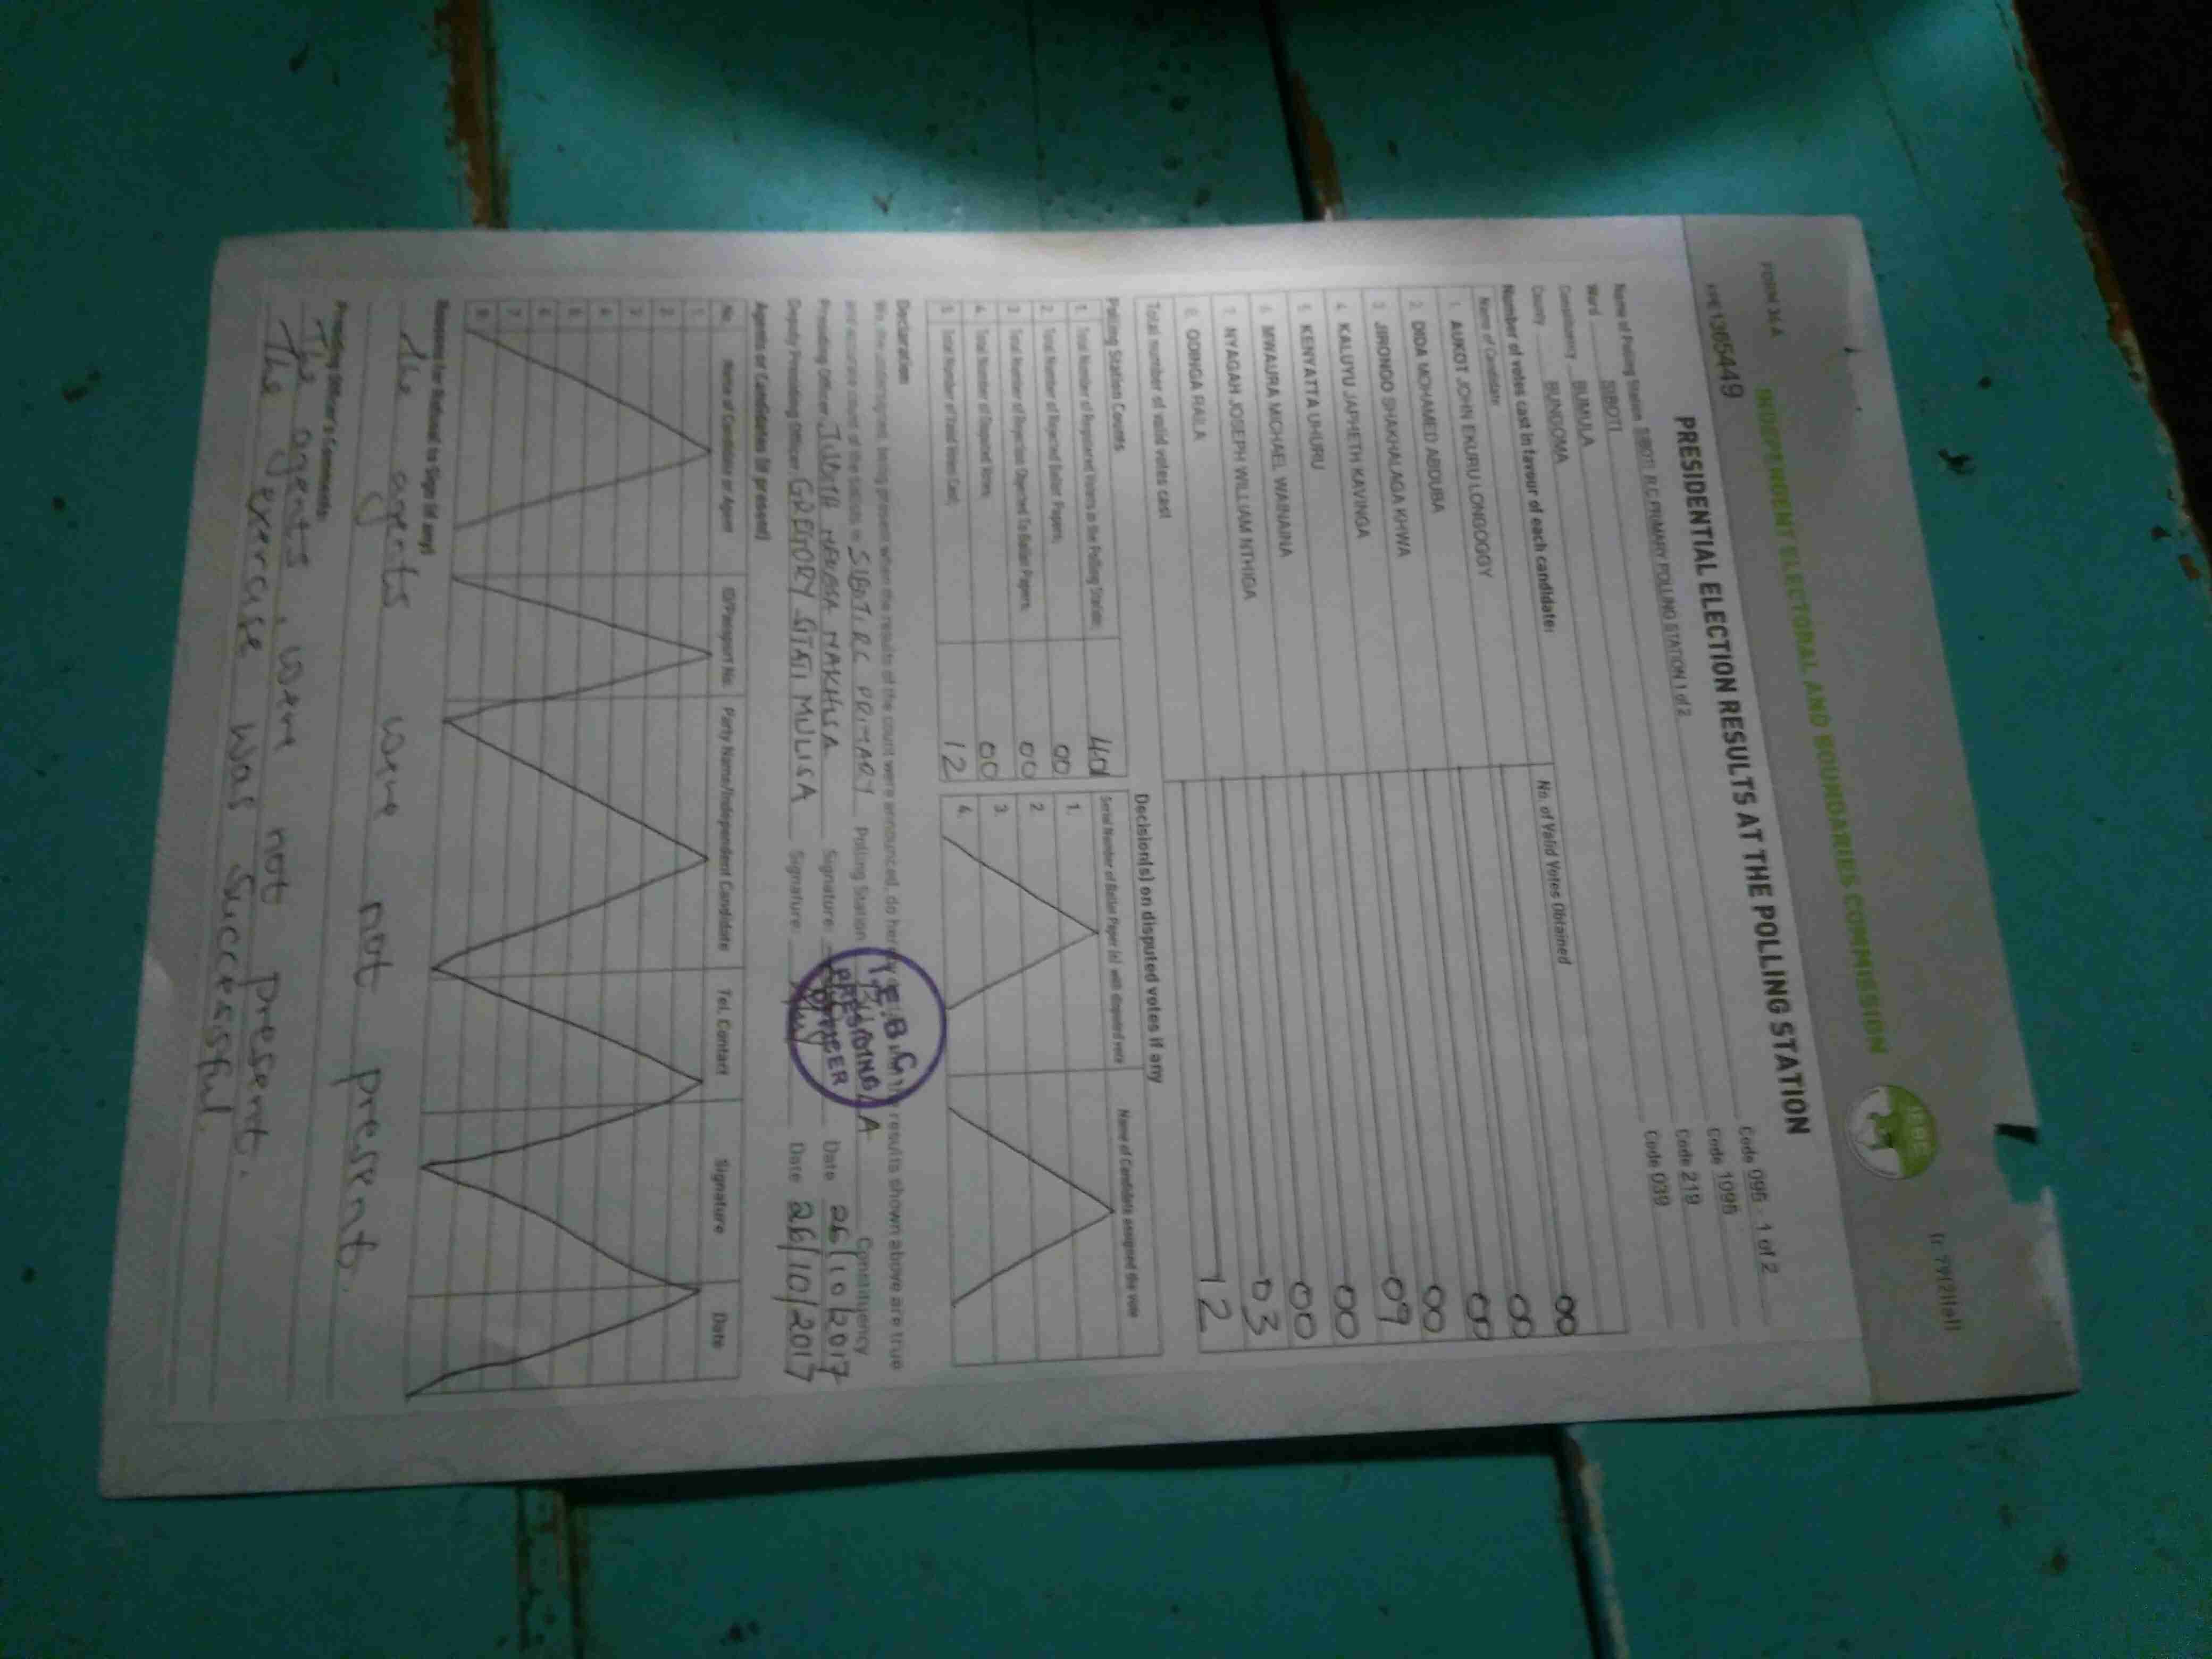 FORM 34A
INDEPENDENT ELECTORAL AND BOUNDARIES COMMISSION
IEBC
PRESIDENTIAL ELECTION RESULTS AT THE POLLING STATION
Name of Polling Station SIBOTI R.C PRIMARY POLLING STATION 1 of 2 Code 095 - 1 of 2
Ward SIBOTI Code 1095
Constituency BUMULA Code 219
County BUNGOMA Code 039
Number of votes cast in favour of each candidate:
Name of Candidate No. of Valid Votes Obtained
1. AUKOT JOHN EKURU LONGOGGY 00
2. DIDA MOHAMED ABDUBA 00
3. JIRONGO SHAKHALAGA KHWA 00
4. KALUYU JAPHETH KAVINGA 00
5. KENYATTA UHURU 09
6. MWAURA MICHAEL WAINAINA 00
7. NYAGAH JOSEPH WILLIAM NTHIGA 00
8. ODINGA RAILA 03
Total number of valid votes cast 12
Polling Station Counts
1. Total Number of Registered Voters in the Polling Station:
2. Total Number of Rejected Ballot Papers: 00
3. Total Number of Rejection Objected To Ballot Papers: 00
4. Total Number of Disputed Votes: 00
5. Total Number of Valid Votes Cast: 12
Decision(s) on disputed votes if any
Serial Number of Ballot Paper (s) with disputed vote Name of Candidate assigned the vote
1.
2.
3.
4.
Declaration
We, the undersigned, being present when the results of the count were announced, do hereby results shown above are true
and accurate count of the ballots in SIBOTI RC PRIMARY Polling Station Constituency
Presiding Officer JUDITH NAKHISA Signature Date 26/10/2017
Deputy Presiding Officer GREGORY SITATI MULISA Signature Date 26/10/2017
I.E.B.C
PRESIDING
OFFICER
Agents or Candidates (if present)
No. Name of Candidate or Agent ID/Passport No. Party Name/Independent Candidate Tel. Contact Signature Date
1.
2.
3.
4.
5.
6.
7.
8.
Reasons for Refusal to Sign (if any)
The agents were not present.
Presiding Officer's Comments:
The agents were not present.
The exercise was successful.